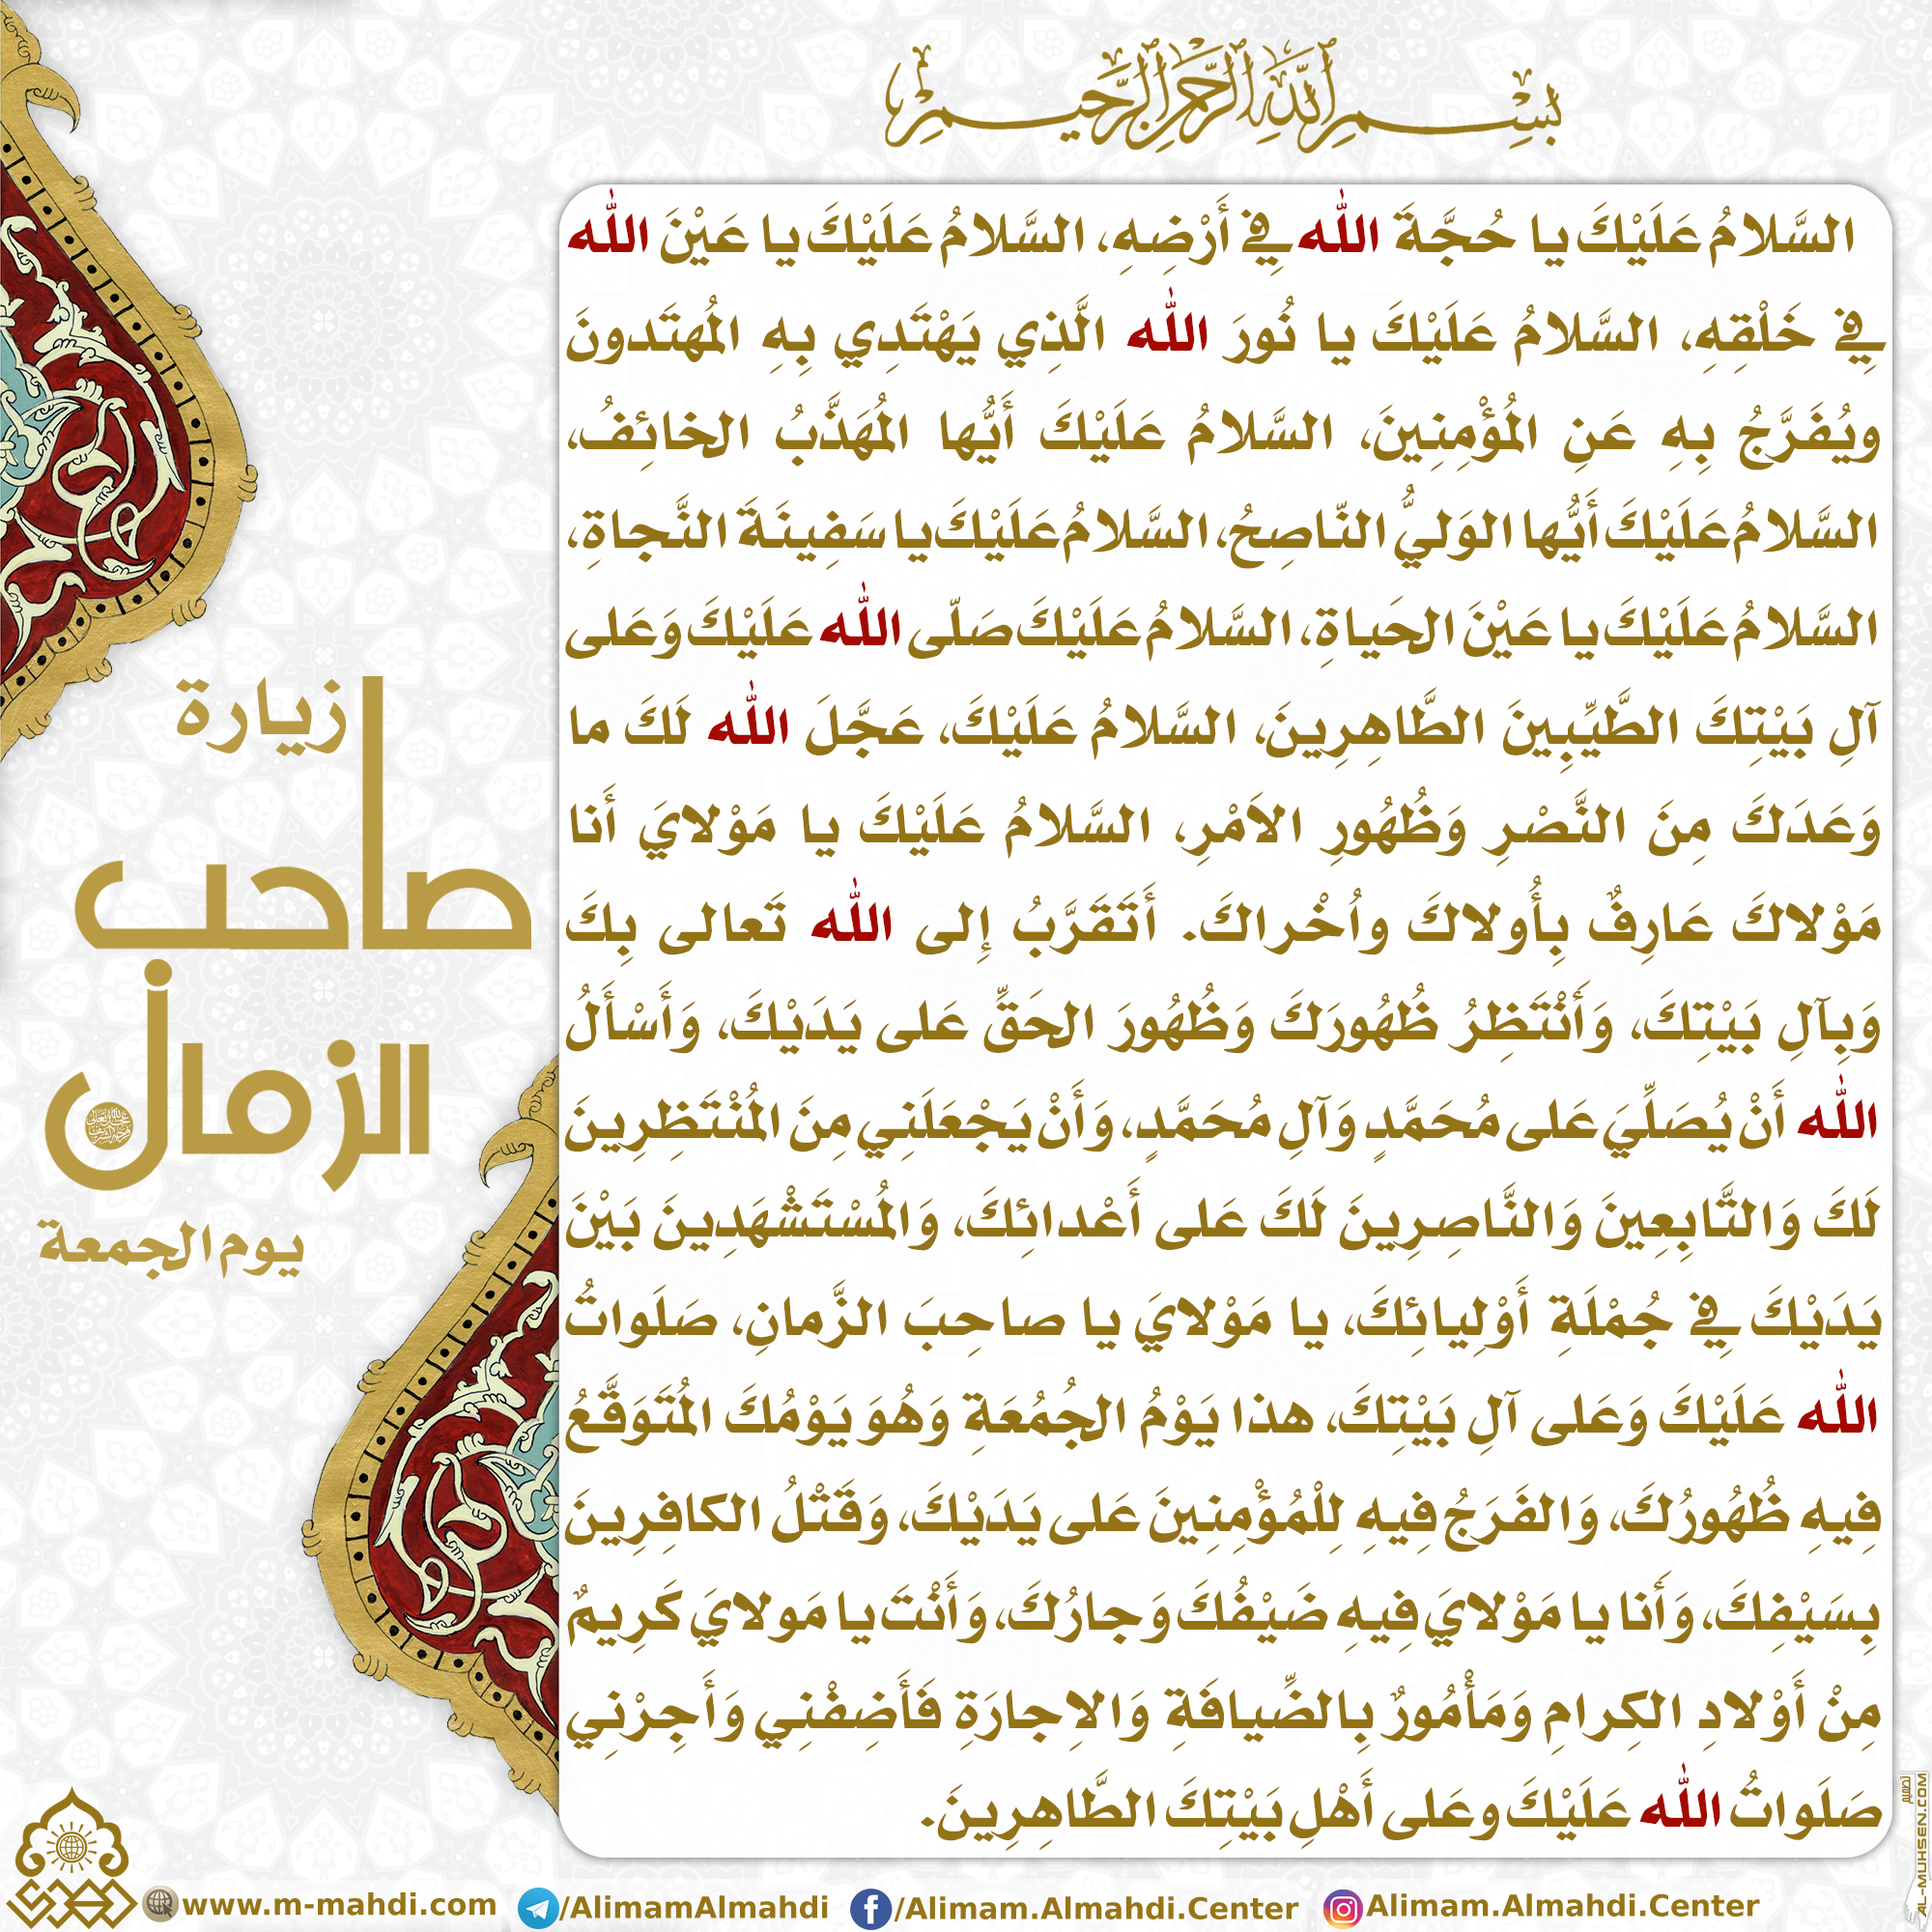 بسم الله الرحمن الرحيم
السَّلامُ عَلَيْكَ يا حُجَّةَ الله فِي أَرْضِهِ، السَّلامُ عَلَيْكَ يا عَيْنَ الله
فِي خَلْقِهِ، السَّلامُ عَلَيْكَ يا نُورَ الله الَّذِي يَهْتَدِي بِهِ المُهتَدونَ
ويُفَرَّجُ بِهِ عَنِ المُؤْمِنِينَ، السَّلامُ عَلَيْكَ أَيُّها المُهَذَّبُ الخائِفُ،
السَّلامُ عَلَيْكَ أَيُّها الوَليُّ النّاصِحُ، السَّلامُ عَلَيْكَ يا سَفِينَةَ النَّجاةِ،
السَّلامُ عَلَيْكَ يا عَيْنَ الحَياةِ، السَّلامُ عَلَيْكَ صَلّى الله عَلَيْكَ وَعَلى
آلِ بَيْتِكَ الطَّيِّبِينَ الطَّاهِرِينَ، السَّلامُ عَلَيْكَ، عَجَّلَ الله لَكَ ما
وَعَدَكَ مِنَ النَّصْرِ وَظُهُورِ الاَمْرِ، السَّلامُ عَلَيْكَ يا مَوْلايَ أَنا
مَوْلاكَ عَارِفٌ بِأُولاكَ واُخْراكَ. أَتَقَرَّبُ إِلى الله تَعالى بِكَ
وَبِآلِ بَيْتِكَ، وَأَنْتَظِرُ ظُهُورَكَ وَظُهُورَ الحَقِّ عَلى يَدَيْكَ، وَأَسْأَلُ
الله أَنْ يُصَلِّيَ عَلى مُحَمَّدٍ وَآلِ مُحَمَّدٍ، وَأَنْ يَجْعَلَنِي مِنَ المُنْتَظِرِينَ
لَكَ وَالتَّابِعِينَ وَالنَّاصِرِينَ لَكَ عَلى أَعْدائِكَ، وَالمُسْتَشْهَدِينَ بَيْنَ
يَدَيْكَ فِي جُمْلَةِ أَوْلِيائِكَ، يا مَوْلايَ يا صاحِبَ الزَّمانِ، صَلَواتُ
الله عَلَيْكَ وَعَلى آلِ بَيْتِكَ، هذا يَوْمُ الجُمُعَةِ وَهُوَ يَوْمُكَ المُتَوَقَّعُ
فِيهِ ظُهُورُكَ، وَالفَرَجُ فِيهِ لِلْمُؤْمِنِينَ عَلى يَدَيْكَ، وَقَتْلُ الكافِرِينَ
بِسَيْفِكَ، وَأَنا يا مَوْلايَ فِيهِ ضَيْفُكَ وَجارُكَ، وَأَنْتَ يا مَولايَ كَرِيمٌ
مِنْ أَوْلادِ الكِرامِ وَمَأْمُورٌ بِالضِّيافَةِ وَالاِجارَةِ فَأَضِفْنِي وَأَجِرْنِي
صَلَواتُ الله عَلَيْكَ وعَلى أَهْلِ بَيْتِكَ الطَّاهِرِينَ.
زيارة
صاحب
الزمان
يوم الجمعة
www.m-mahdi.com
/AlimamAlmahdi
/Alimam.Almahdi.Center
Alimam.Almahdi.Center
تصميم
AL-MUHSEN.COM